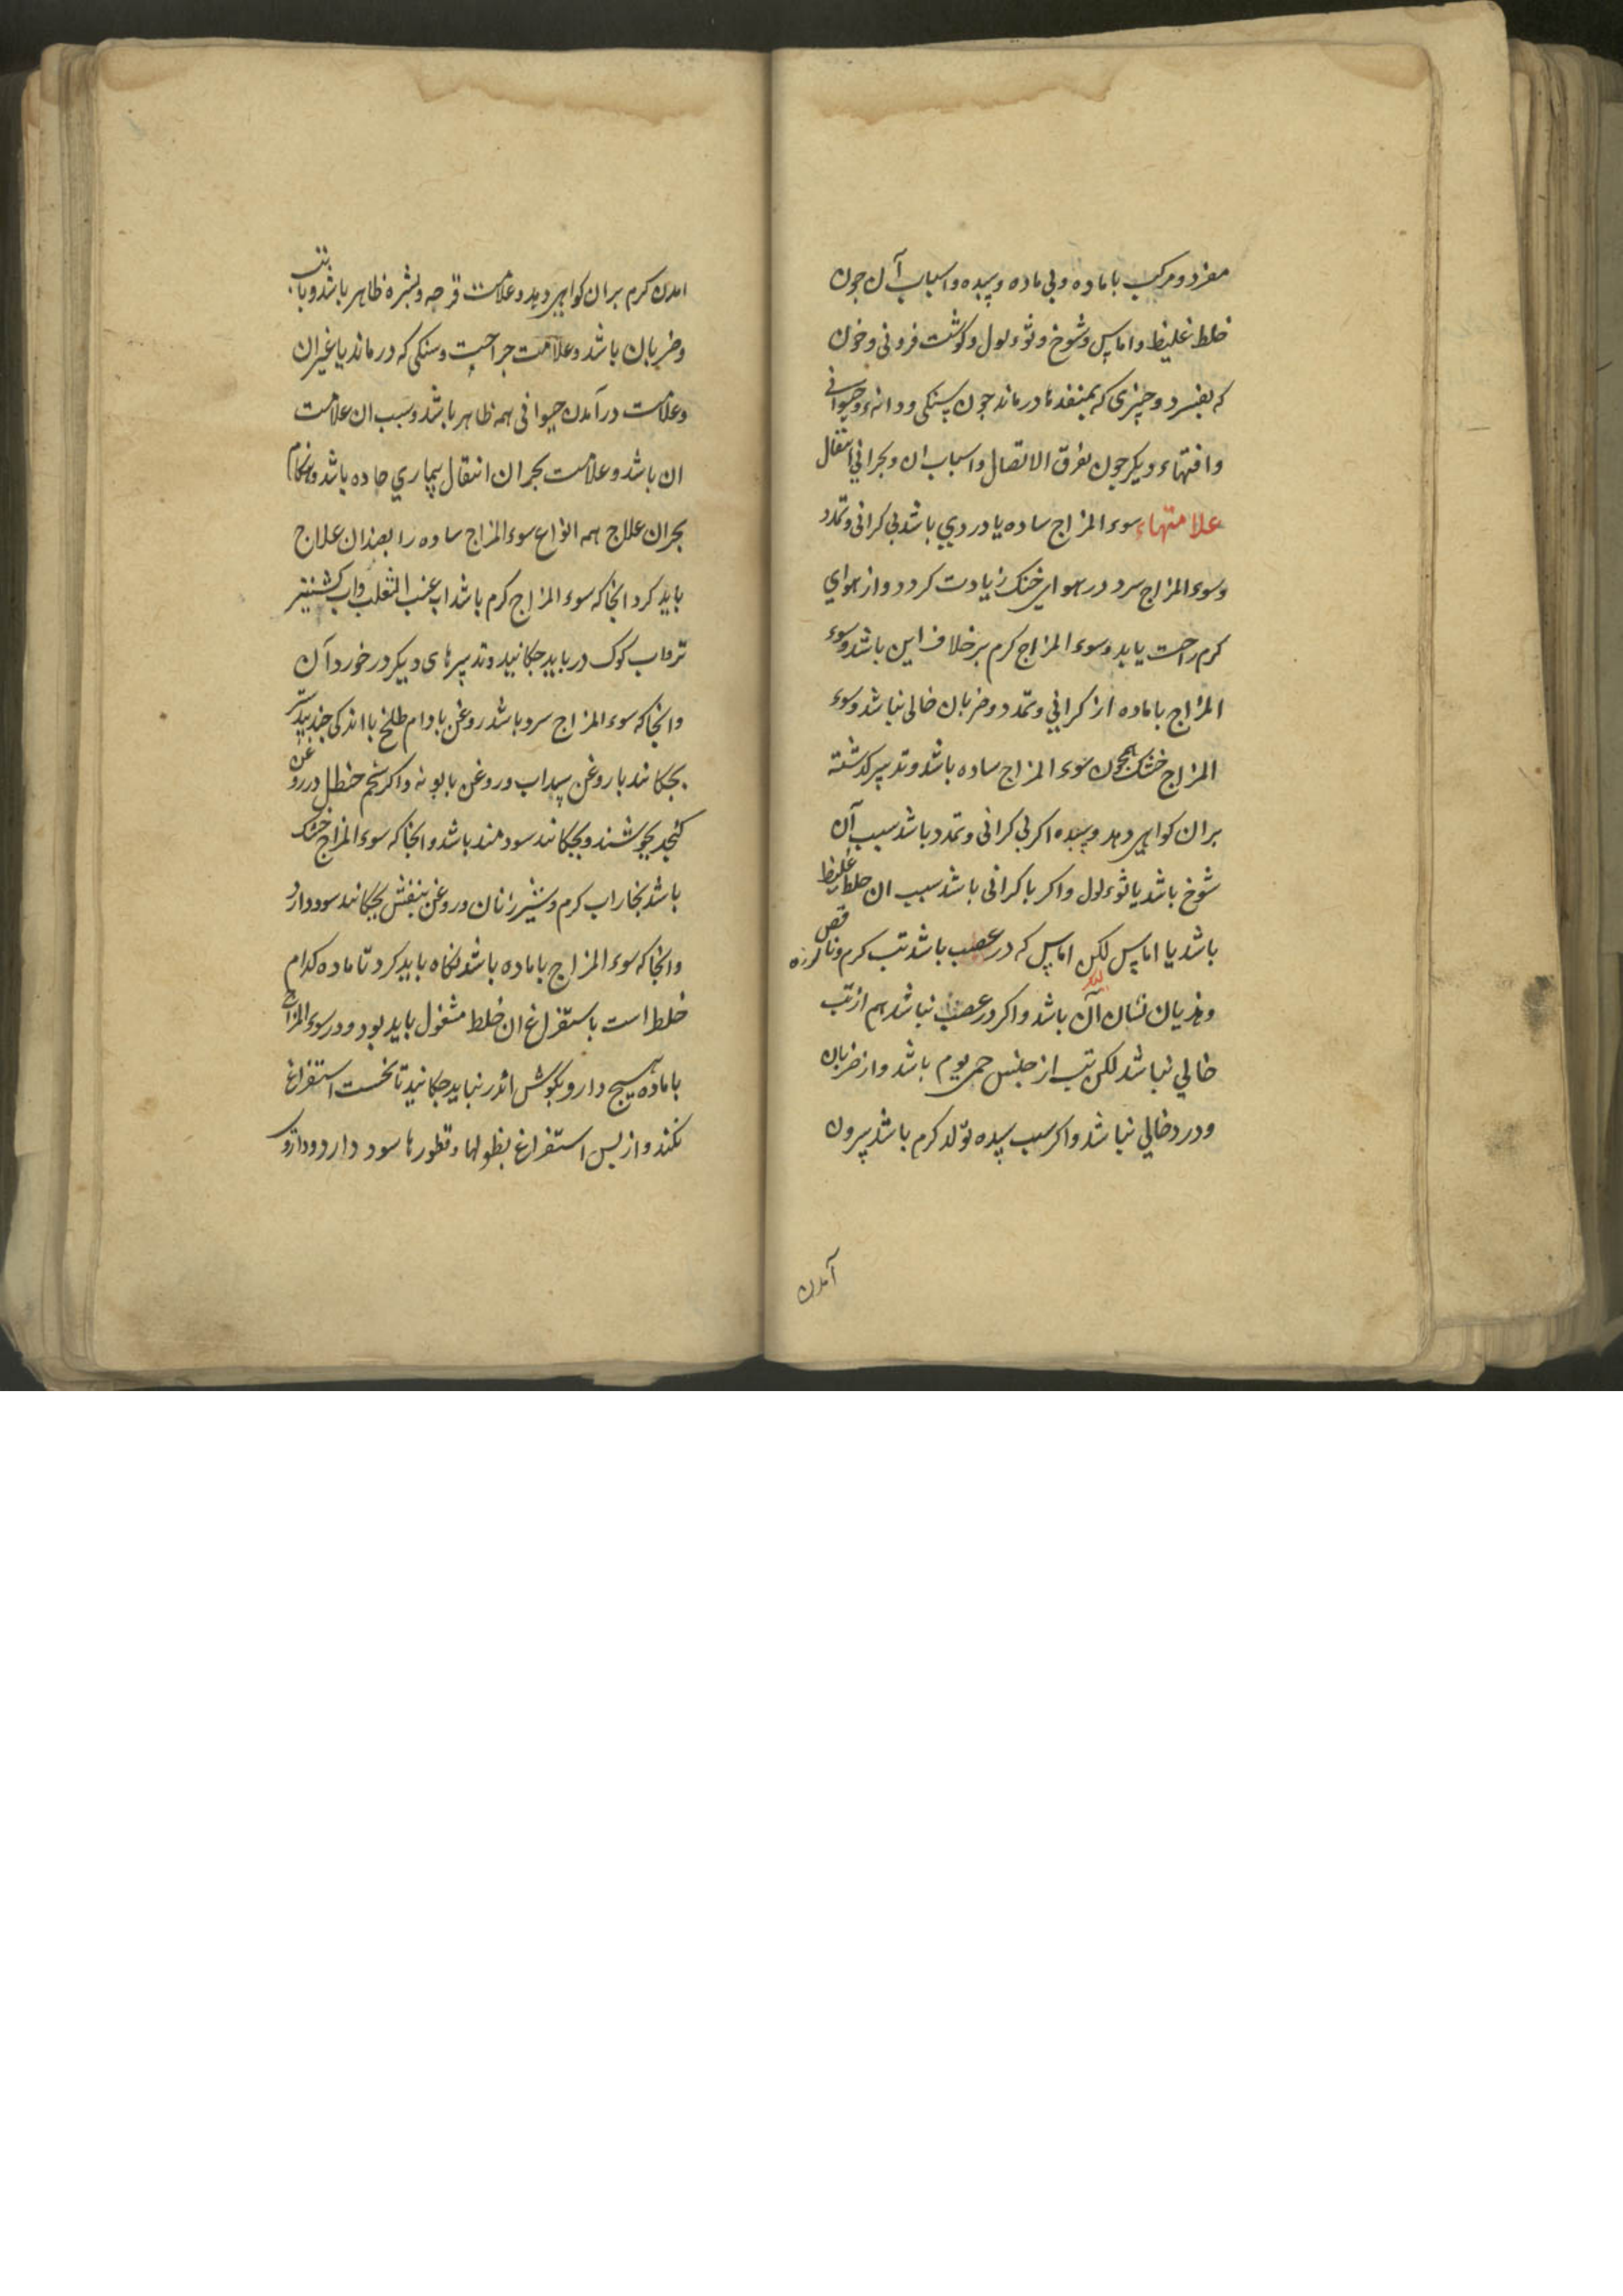 مفرد و مرکب با ماده و بی ماده و سده و اسباب آن چون
خلط غلیظ و اماس و شوخ و ثولول و کوشت فزونی و خون
که بفسرد و چیزی که بمنفذها درماند چون سنکی و دانه و حیوانی
و افتهاء دیکر چون تفرق الاتصال و اسباب ان و بحرانی انتقال
علامتهاء سوء المزاج ساده یا دردی باشد بی کرانی و تمدد
و سوء المزاج سرد در هوای خنک زیادت کردد و از هوای
کرم راحت یابد و سوء المزاج کرم بر خلاف این باشد و سوء
المزاج با ماده از کرانی و تمدد و ضربان خالی نباشد و سوء
المزاج خشک همچون سوء المزاج ساده باشد و تدبیر کذشته
بران کواهی دهد و سده اکر بی کرانی و تمدد باشد سبب آن
شوخ باشد یا ثوءلول و اکر با کرانی باشد سبب ان خلط غلیظ
باشد یا اماس لکن اماس که در عصب باشد تب کرم و نافض لرزه
و هذیان نشان آن باشد و اکر در عصب نباشد هم از تب
خالی نباشد لکن تب از جنس حمی یوم باشد و از ضربان
و درد خالی نباشد و اکر سبب سده تولد کرم باشد بیرون
آمدن
امدن کرم بران کواهی دهد و علامت قرحه و بثره ظاهر باشد و با تب
و ضربان باشد و علامت جراحت و سنکی که درماند یا غیر ان
و علامت درآمدن حیوانی همه ظاهر باشد و سبب ان علامت
ان باشد و علامت بحران انتقال بیماری حاده باشد و هنکام
بحران علاج همه انواع سوء المزاج ساده را بضد ان علاج
باید کرد انجا که سوء المزاج کرم باشد اب عنب الثعلب و اب کشنیز
تر و اب کوک در باید چکانید و تدبیرهای دیکر در خورد آن
و انجا که سوء المزاج سرد باشد روغن بادام طلخ با اندکی جندبیدستر
بچکانند یا روغن سداب و روغن بابونه و اکر شحم حنطل در روغن
کنجد بجوشند و بچکانند سودمند باشد و انجا که سوء المزاج خشک
باشد بخار اب کرم و شیر زنان و روغن بنفش بچکانند سود دارد
و انجا که سوء المزاج با ماده باشد نکاه باید کرد تا ماده کدام
خلط است باستفراغ ان خلط مشغول باید بود و در سوء المزاج
با ماده هیچ دارو بکوش اندر نباید چکانید تا نخست استفراغ
نکنند و از پس استفراغ نطولها و قطورها سود دارد و داروء